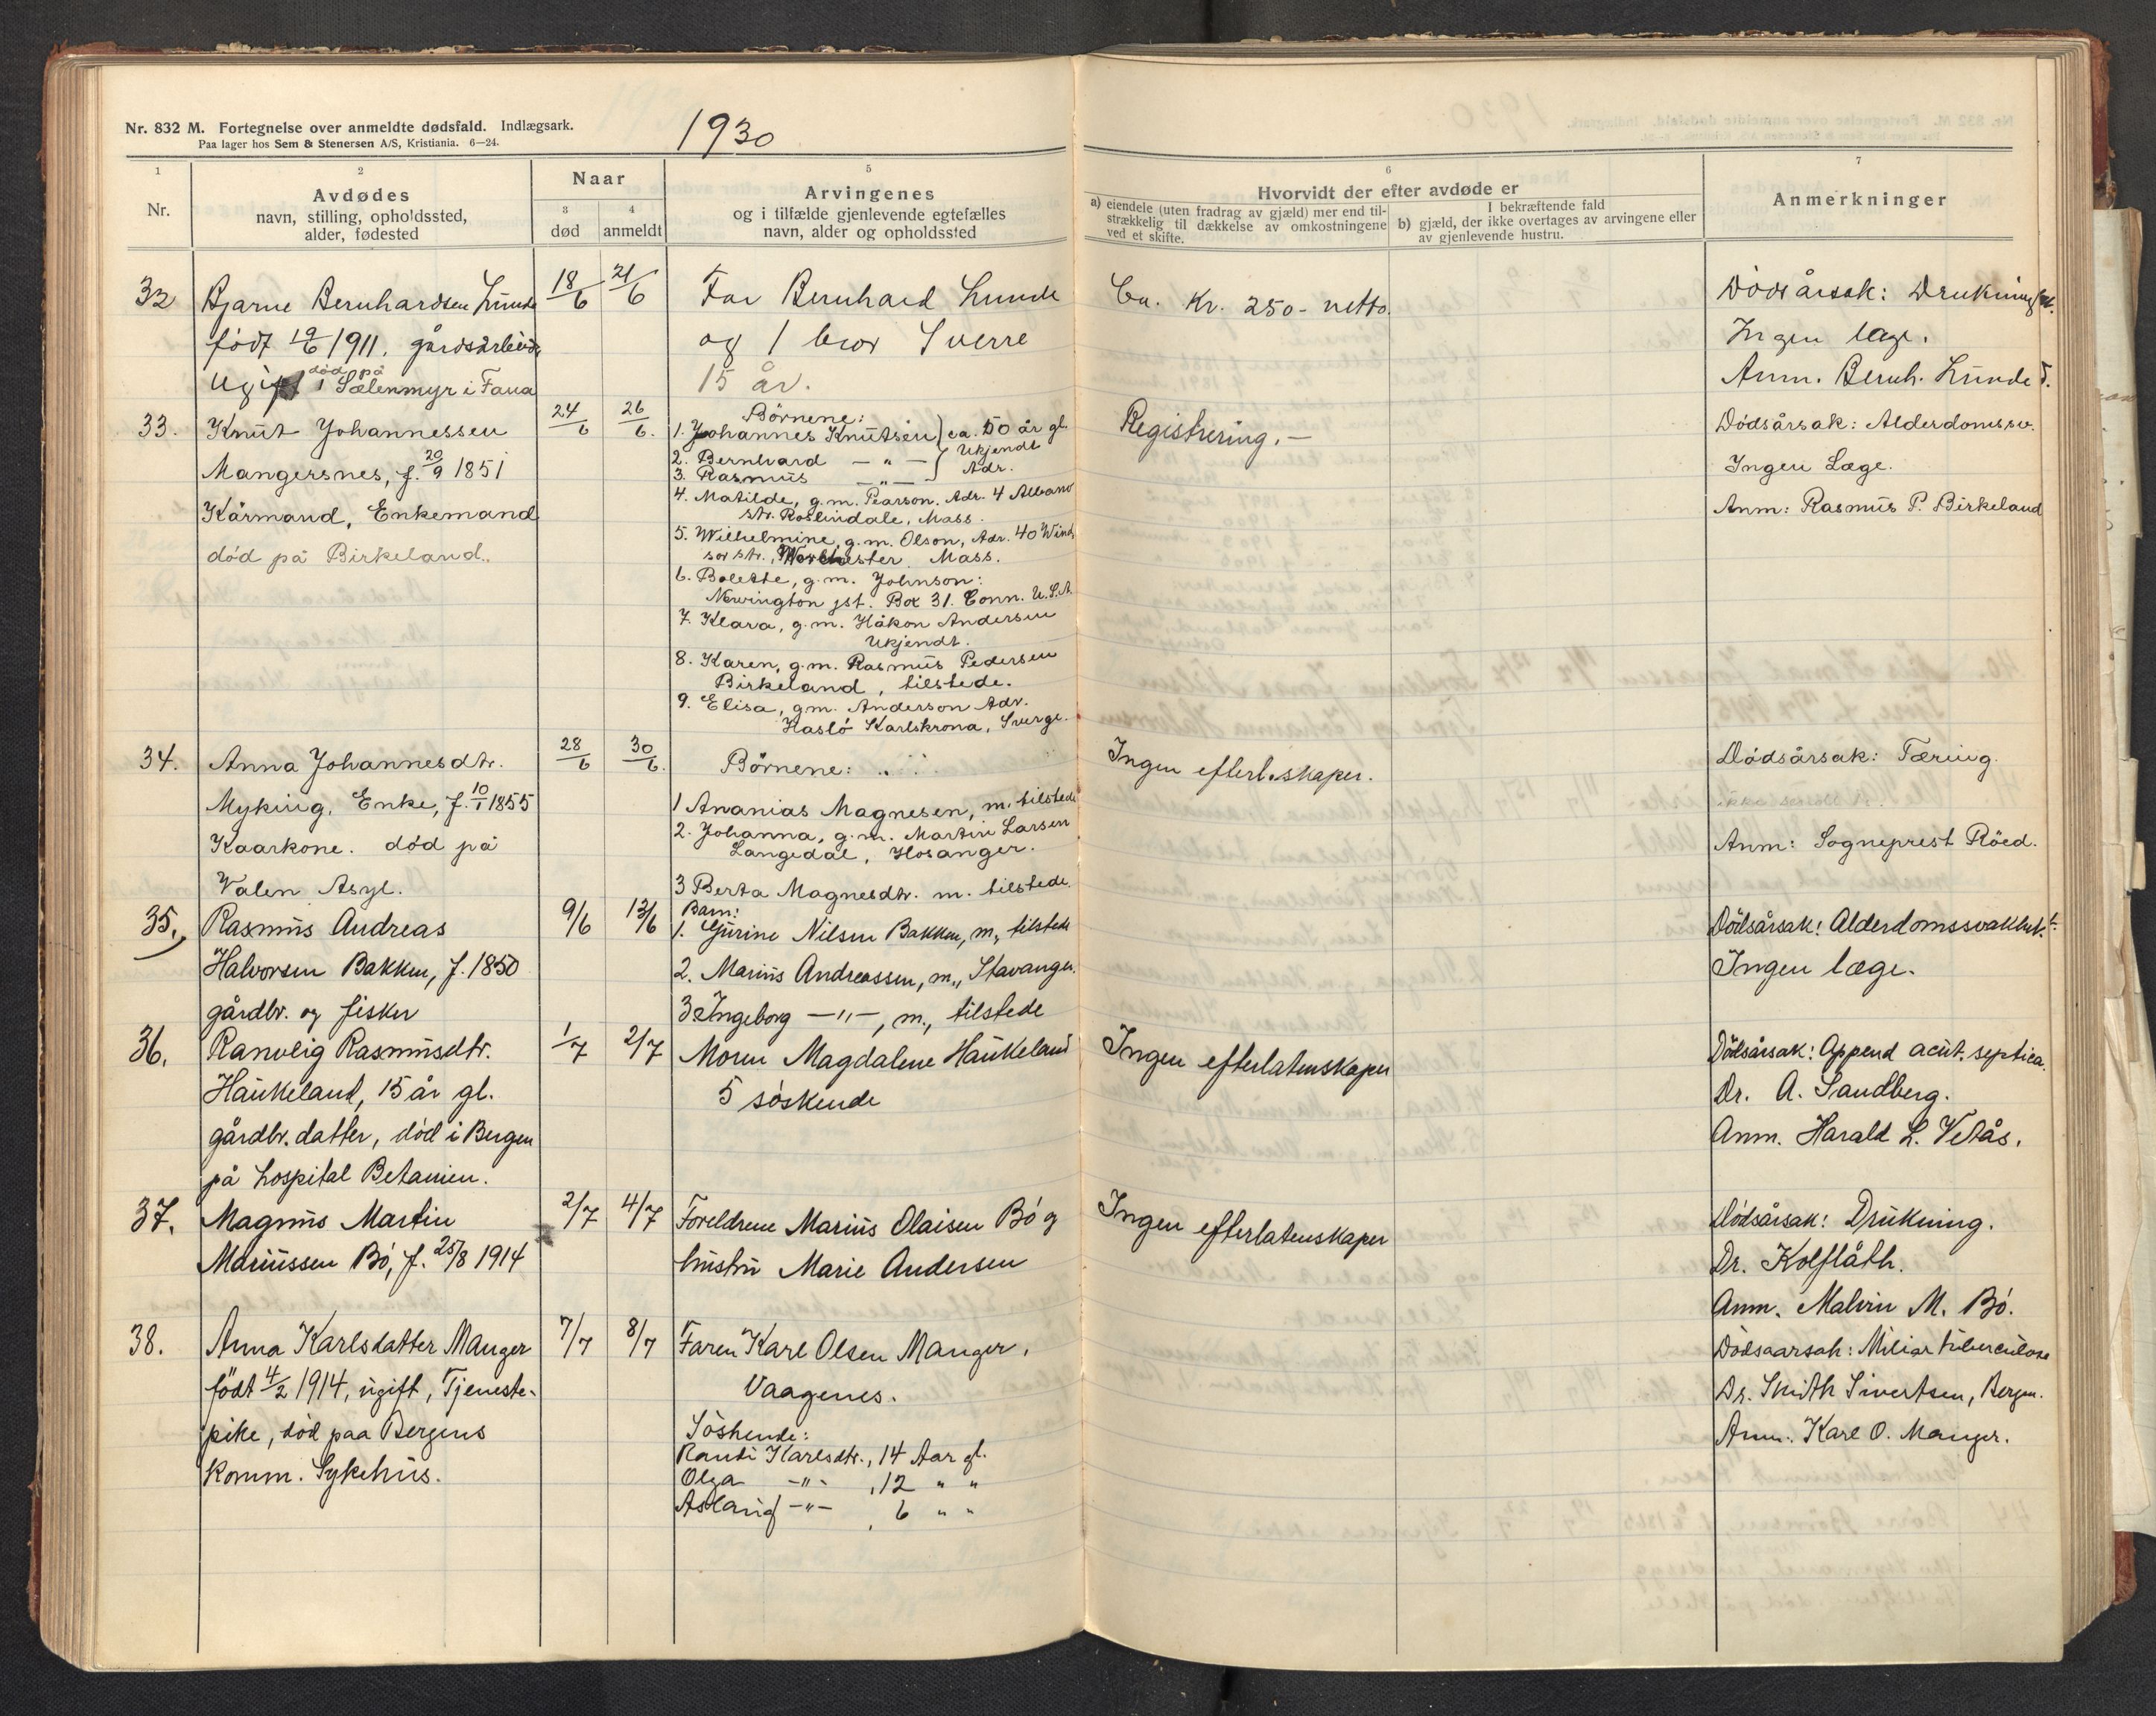 Nr. 832 M. Fortegnelse over anmeldte dødsfald. Indlægsark.
Paa lager hos Sem & Stenersen A/S, Kristiania. 6—24.
1930
1
Nr.
2
Avdødes
navn, stilling, opholdssted,
alder, fødested
Naar
3
død
4
anmeldt
5
Arvingenes
og i tilfælde gjenlevende egtefælles
navn, alder og opholdssted
6
Hvorvidt der efter avdøde er
a) eiendele (uten fradrag av gjæld) mer end til-
strækkelig til dækkelse av omkostningene
ved et skifte.
I bekræftende fald
b) gjæld, der ikke overtages av arvingene eller
av gjenlevende hustru.
7
Anmerkninger
32
Bjarne Bernhardsen Lunde
født 19/6 1911. gårdsarbeid.
Ugift død på
i Sælenmyr i Fana
18/6
21/6
Far Bernhard Lunde
og 1 bror Sverre
15 år.
Ca. Kr. 250.- netto.
Dødsårsak: Drukning
Ingen læge.
Anm. Bernh. Lunde
33.
Knut Johannessen
Mangersnes, f. 20/9 1851
Kårmand, Enkemand
død på Birkeland.
24/6
26/6.
Børnene:
1. Johannes Knutsen } ca. 50 år gl.
2. Bernhard — " — } Ukjendt
3. Rasmus — " — Adr.
4. Matilde, g.m. Pearson. Adr. 4 Albano
str. Roslindale, Mass.
5. Wilhelmine, g.m. Olson, Adr. 40 Wind
sor str., Worchester Mass.
6. Bolette, g.m. Johnson:
Newington jst. Box 31. Conn. U.S.A.
7. Klara, g.m. Håkon Andersen
Ukjendt.
8. Karen, g.m. Rasmus Pedersen
Birkeland, tilstede.
9. Elisa, g.m. Anderson Adr.
Hasló Karlskrona, Sverge.
Registrering.—
Dødsårsak: Alderdomssv.
Ingen Læge.
Anm: Rasmus P. Birkeland
34.
Anna Johannesdtr.
Myking, Enke, f. 10/1 1855
Kaarkone. død på
Valen Asyl.
28/6
30/6.
Børnene:
1 Ananias Magnesen, m. tilstede
2. Johanna, g.m. Martin Larsen
Langedal, Hosanger.
3 Berta Magnesdtr. m. tilstede.
Ingen efterl.skaper.
Dødsårsak: Tæring.
Anm: Sogneprest Röed.
35.
Rasmus Andreas
Halvorsen Bakken, f. 1850
gårdbr. og fisker
9/6
13/6
Barn:
1. Gurine Nilsen Bakken, m., tilstede
2. Marius Andreassen, m., Stavanger.
3. Ingeborg —"—, m., tilstede
Dødsårsak: Alderdomssvakhet.
Ingen læge.
36.
Ranveig Rasmusdtr.
Haukeland, 15 år gl.
gårdbr. datter, død i Bergen
på hospital Betanien.
1/7
2/7
Moren Magdalene Haukeland
5 søskende
Ingen efterlatenskaper
Dødsårsak: Append acut. septica.
Dr. A. Sandberg.
Anm. Harald L. Vetås.
37.
Magnus Martin
Mariussen Bó, f. 25/8 1914
2/7
4/7
Foreldrene Marius Olaisen Bó og
hustru Marie Andersen
Ingen efterlatenskaper
Dødsårsak: Drukning.
Dr. Kolflåth.
Anm. Malvin M. Bó.
38.
Anna Karlsdatter Manger
født 4/2 1914, ugift, Tjeneste-
pike, död paa Bergens
Komm. Sykehus.
7/7
8/7
Faren Karl Olsen Manger,
Vaagenes.
Söskende:
Randi Karlsdtr., 14 Aar gl.
Olga —"— , 12 " "
Aslaug —"— , 6 " "
Dödsaarsak: Miliar tuberculose
Dr. Smith Sivertsen, Bergen.
Anm: Karl O. Manger.